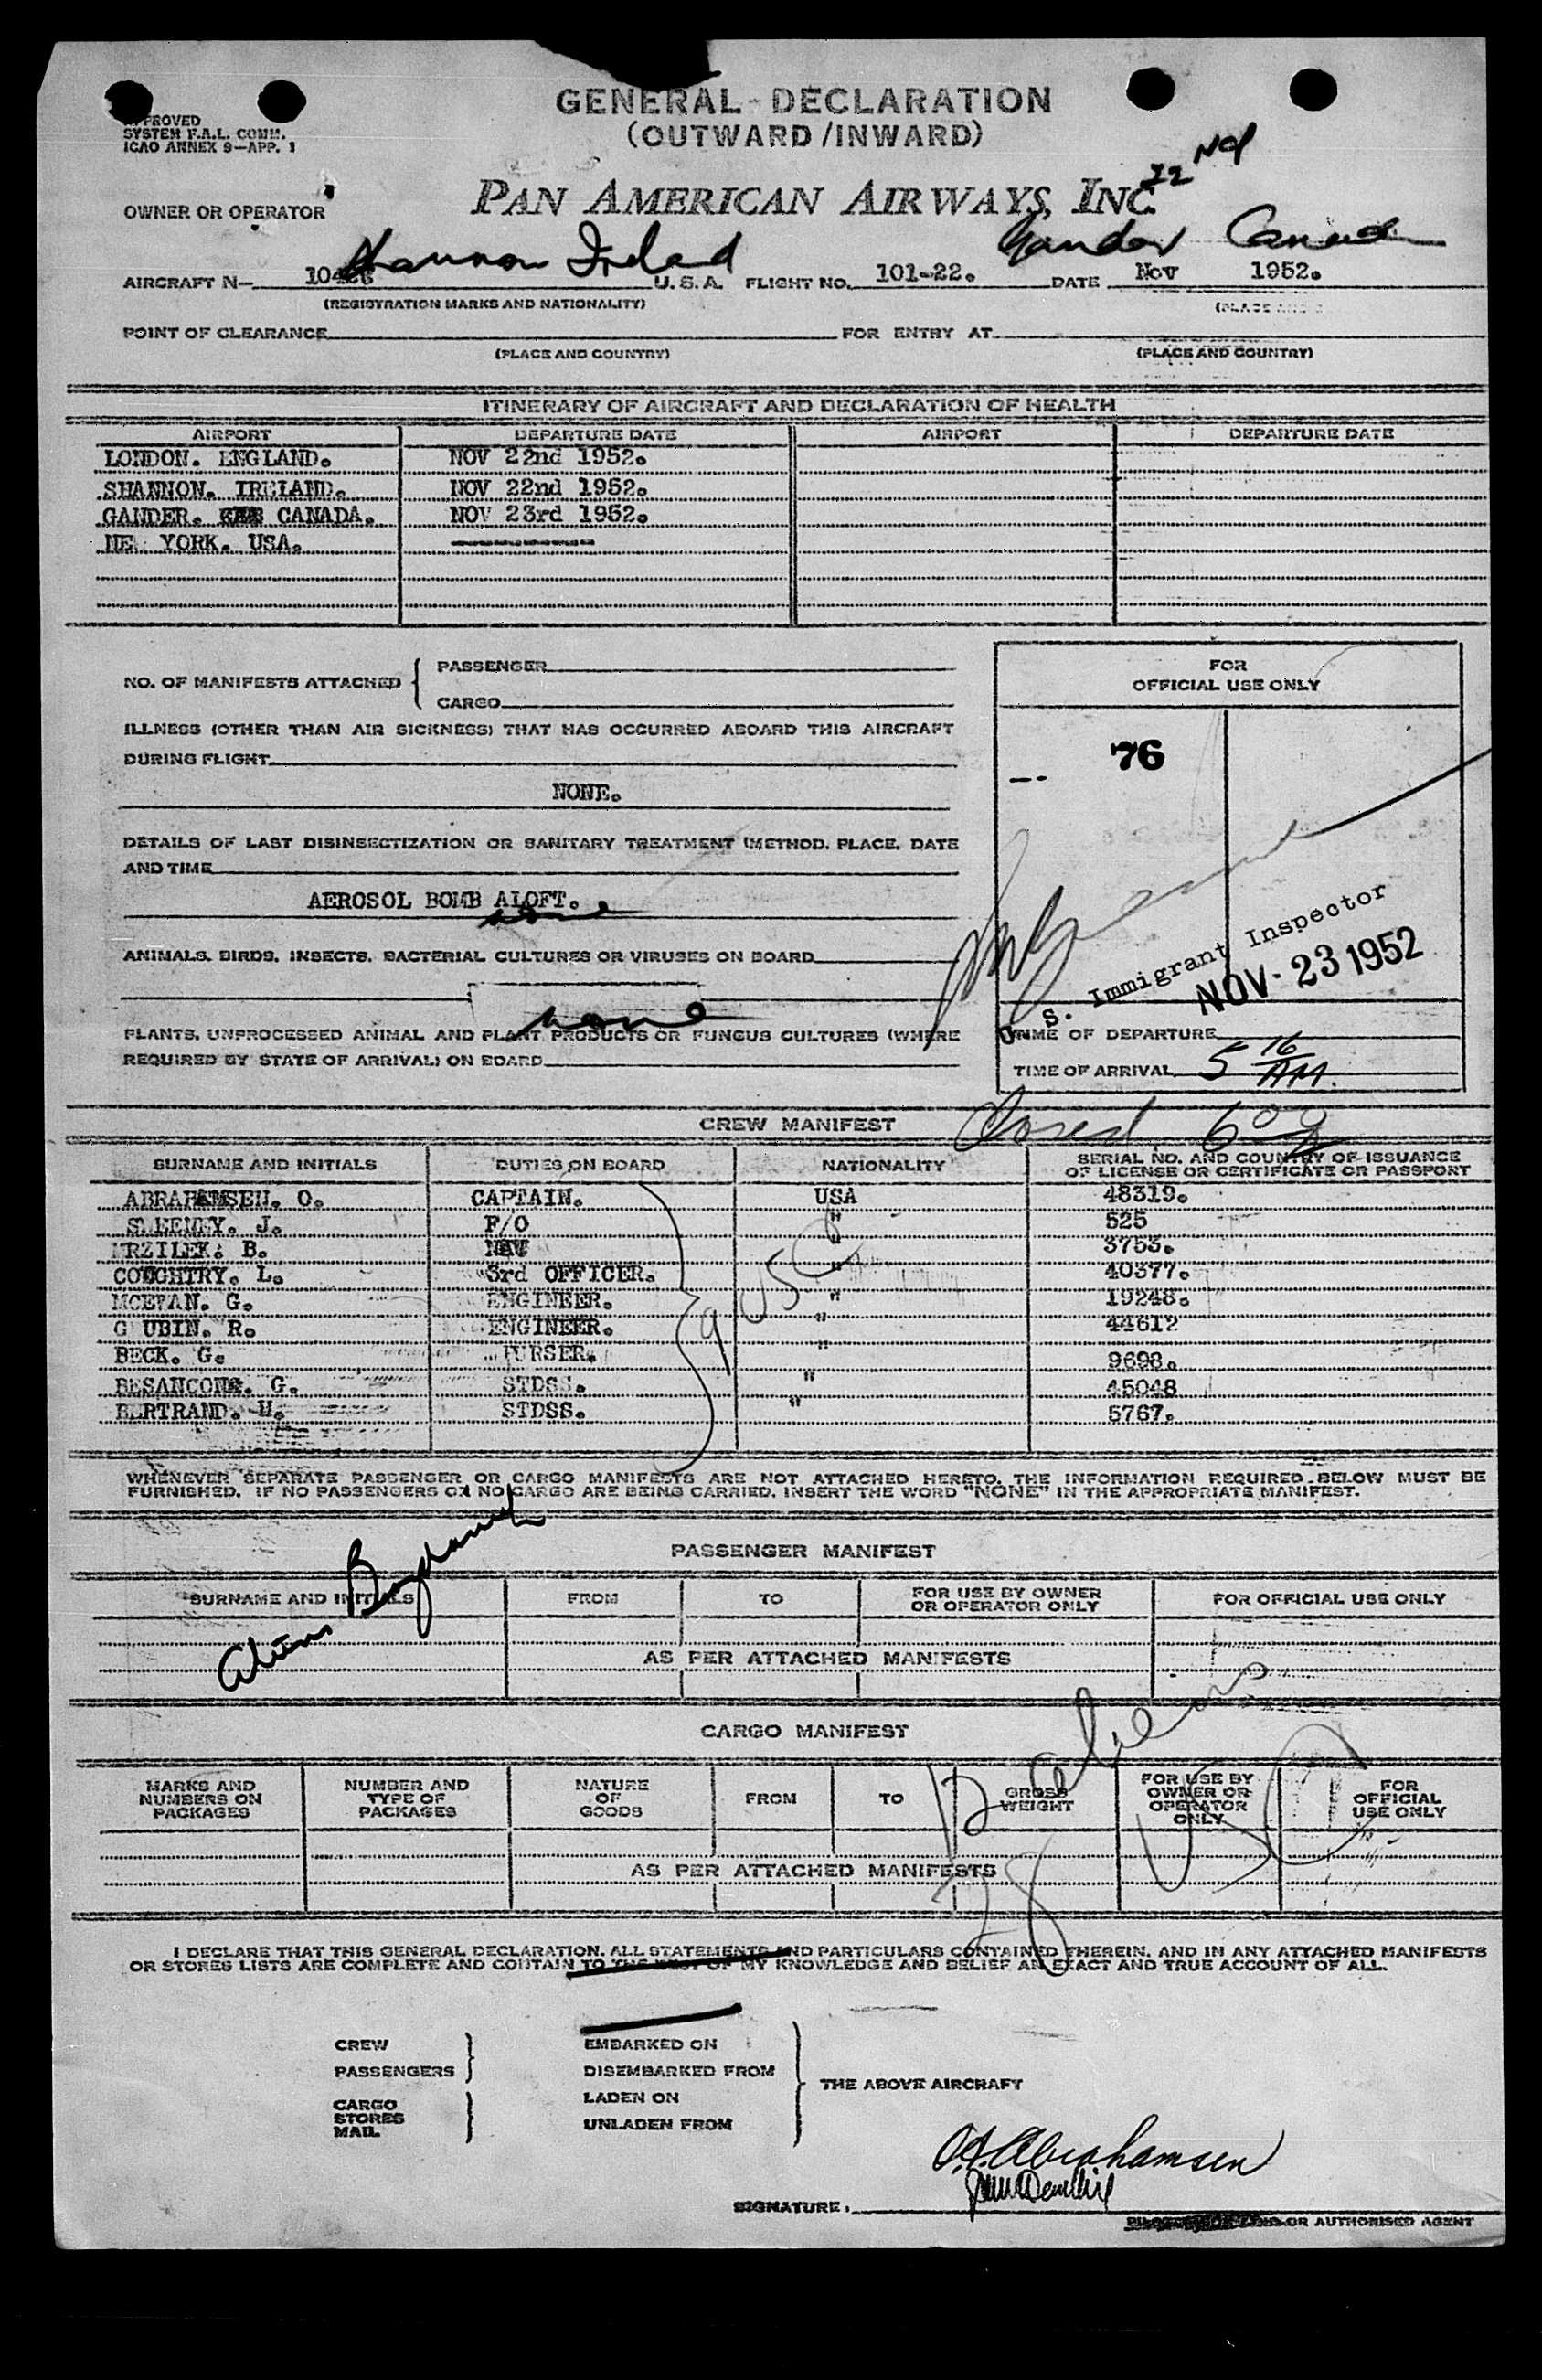 GENERAL DECLARATION
(OUTWARD/INWARD)
APPROVED
SYSTEM F.A.L. COMM.
ICAO ANNEX 9—APP. 1
22 Nd
OWNER OR OPERATOR PAN AMERICAN AIRWAYS, INC.
Shannon Ireland Gander Canada
AIRCRAFT N— U. S. A. FLIGHT NO. 101-22. DATE Nov 1952.
(REGISTRATION MARKS AND NATIONALITY)
POINT OF CLEARANCE FOR ENTRY AT
(PLACE AND COUNTRY) (PLACE AND COUNTRY)
ITINERARY OF AIRCRAFT AND DECLARATION OF HEALTH
AIRPORT DEPARTURE DATE AIRPORT DEPARTURE DATE
LONDON. ENGLAND. NOV 22nd 1952.
SHANNON. IRELAND. NOV 22nd 1952.
GANDER. CANADA. NOV 23rd 1952.
NE YORK. USA. ----------
NO. OF MANIFESTS ATTACHED { PASSENGER
CARGO
ILLNESS (OTHER THAN AIR SICKNESS) THAT HAS OCCURRED ABOARD THIS AIRCRAFT
DURING FLIGHT
NONE.
DETAILS OF LAST DISINSECTIZATION OR SANITARY TREATMENT (METHOD, PLACE, DATE
AND TIME
AEROSOL BOMB ALOFT.
none
ANIMALS, BIRDS, INSECTS, BACTERIAL CULTURES OR VIRUSES ON BOARD
none
PLANTS, UNPROCESSED ANIMAL AND PLANT PRODUCTS OR FUNGUS CULTURES (WHERE
REQUIRED BY STATE OF ARRIVAL) ON BOARD
FOR
OFFICIAL USE ONLY
76
U. S. Immigrant Inspector
NOV - 23 1952
TIME OF DEPARTURE
TIME OF ARRIVAL 5 16 AM.
Closed
CREW MANIFEST
SURNAME AND INITIALS DUTIES ON BOARD NATIONALITY SERIAL NO. AND COUNTRY OF ISSUANCE
OF LICENSE OR CERTIFICATE OR PASSPORT
ABRAHAMSEN. O. CAPTAIN. USA 48319.
SWEENEY. J. F/O " 525
MRZILEK. B. NAV " 3753.
COUGHTRY. L. 3rd OFFICER. " 40377.
MCEWAN. G. ENGINEER. " 19248.
G UBIN. R. ENGINEER. " 44612
BECK. G. PURSER. " 9698.
BESANCON. G. STDSS. " 45048
BERTRAND. STDSS. " 5767.
9 USC
WHENEVER SEPARATE PASSENGER OR CARGO MANIFESTS ARE NOT ATTACHED HERETO, THE INFORMATION REQUIRED BELOW MUST BE
FURNISHED. IF NO PASSENGERS OR NO CARGO ARE BEING CARRIED, INSERT THE WORD "NONE" IN THE APPROPRIATE MANIFEST.
PASSENGER MANIFEST
SURNAME AND INITIALS FROM TO FOR USE BY OWNER
OR OPERATOR ONLY FOR OFFICIAL USE ONLY
AS PER ATTACHED MANIFESTS
aliens
CARGO MANIFEST
MARKS AND
NUMBERS ON
PACKAGES
NUMBER AND
TYPE OF
PACKAGES
NATURE
OF
GOODS
FROM
TO
GROSS
WEIGHT
FOR USE BY
OWNER OR
OPERATOR
ONLY
FOR
OFFICIAL
USE ONLY
28 USC
AS PER ATTACHED MANIFESTS
I DECLARE THAT THIS GENERAL DECLARATION, ALL STATEMENTS AND PARTICULARS CONTAINED THEREIN, AND IN ANY ATTACHED MANIFESTS
OR STORES LISTS ARE COMPLETE AND CONTAIN TO THE BEST OF MY KNOWLEDGE AND BELIEF AN EXACT AND TRUE ACCOUNT OF ALL.
CREW
PASSENGERS
CARGO
STORES
MAIL
EMBARKED ON
DISEMBARKED FROM
LADEN ON
UNLADEN FROM
THE ABOVE AIRCRAFT
O. A. Abrahamsen
SIGNATURE.
OR AUTHORISED AGENT